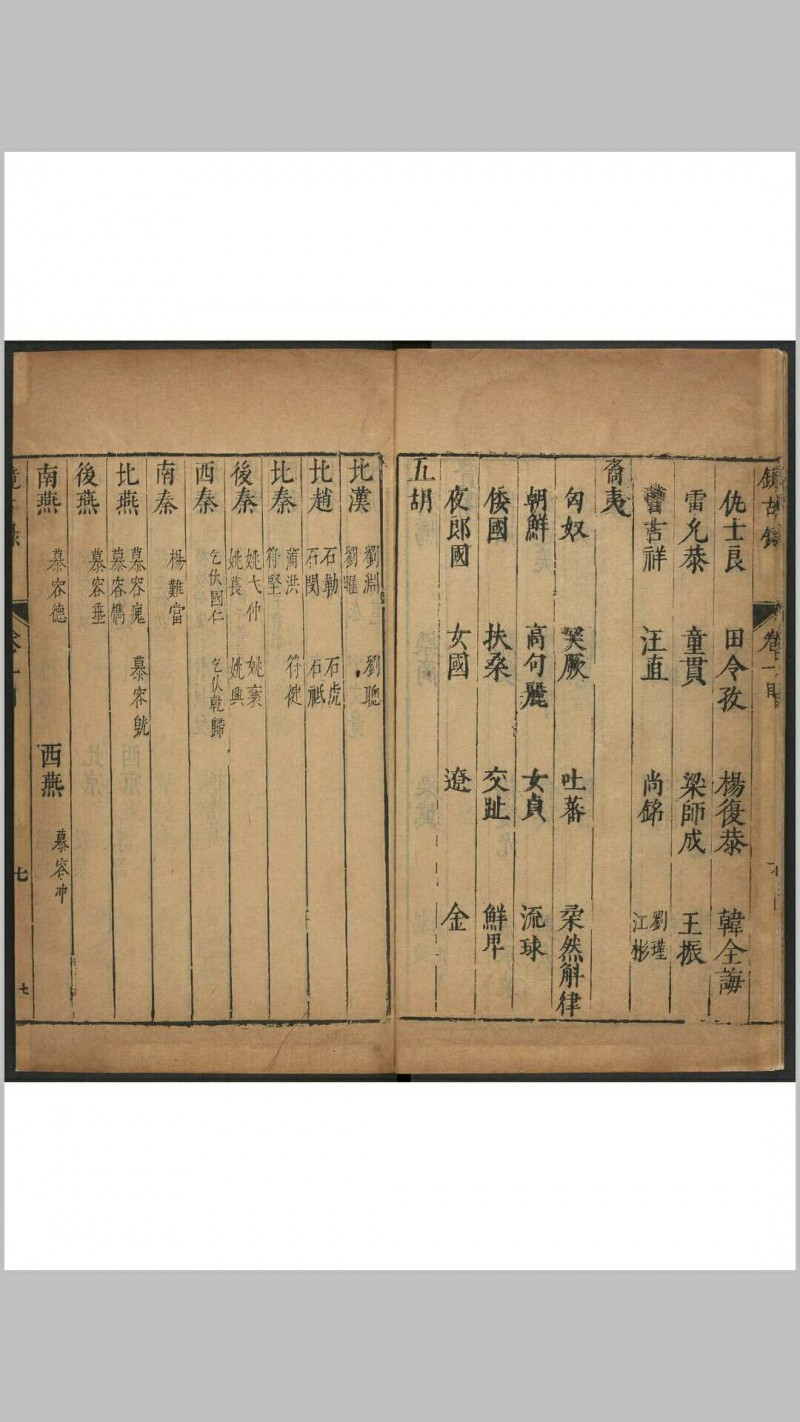 仇士良 田令孜 楊復恭 韓全誨
雷允恭 童貫 梁師成 王振
曹吉祥 汪直 尚銘 劉瑾 江彬
裔夷
匈奴 突厥 吐蕃 柔然斛律
朝鮮 高句麗 女貞 流球
倭國 扶桑 交趾 鮮卑
夜郎國 女國 遼 金
五胡
北漢 劉淵 劉曜 劉聰
北趙 石勒 石閔 石虎 石祗
北秦 蒲洪 符堅 符健
後秦 姚弋仲 姚萇 姚襄 姚興
西秦 乞伏國仁 乞伏乾歸
南秦 楊難當
北燕 慕容廆 慕容儁 慕容皝
後燕 慕容垂
南燕 慕容德 西燕 慕容冲
七
七